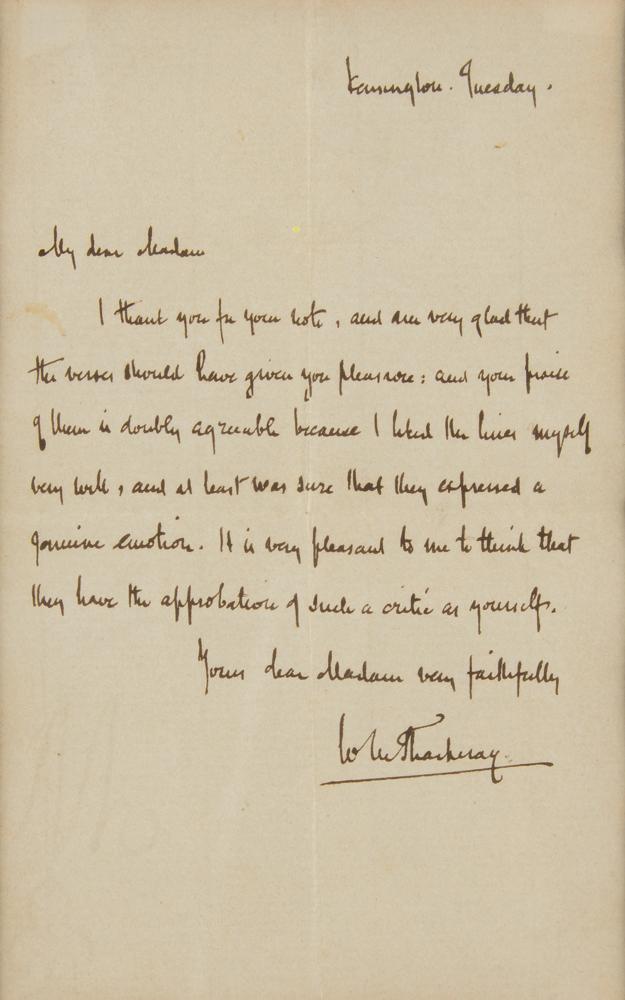 Kensington. Tuesday.
My dear Madam
I thank you for your note, and am very glad that
the verses should have given you pleasure: and your praise
of them is doubly agreeable because I liked the lines myself
very well, and at least was sure that they expressed a
genuine emotion. It is very pleasant to me to think that
they have the approbation of such a critic as yourself.
Yours dear Madam very faithfully
W M Thackeray.